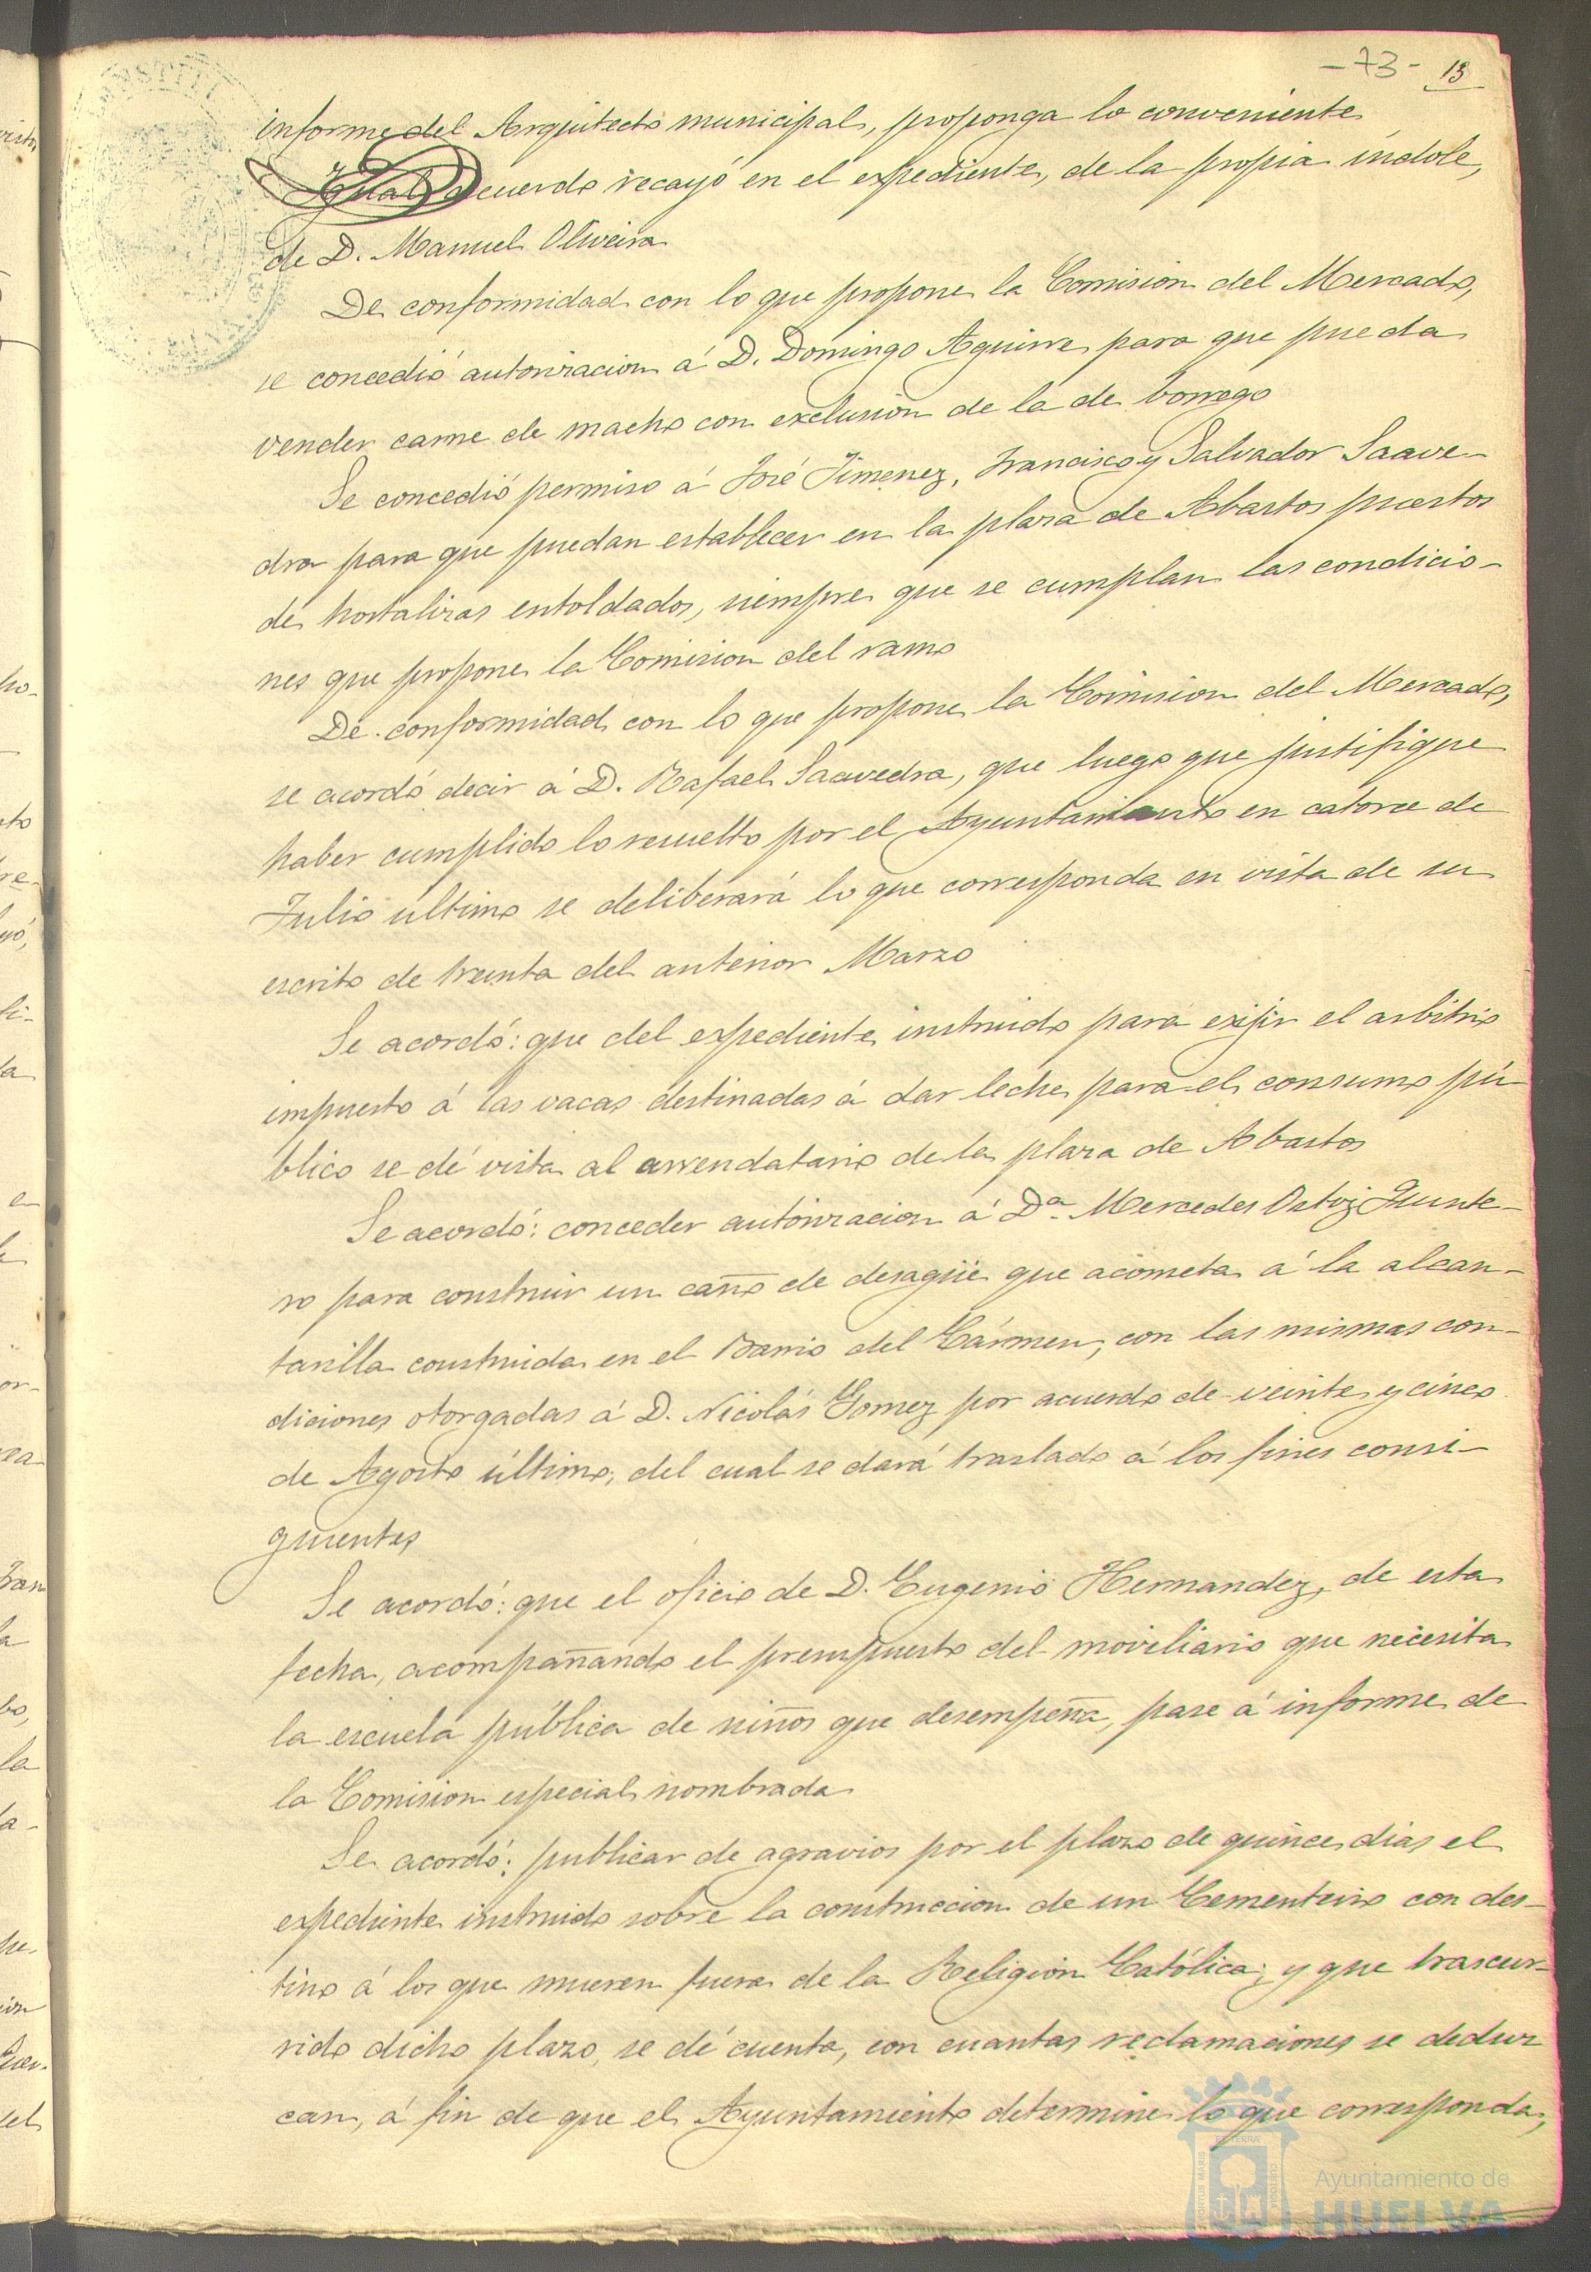 - 73 - 13
informe del Arquitecto municipal, proponga lo conveniente
Igual acuerdo recayó en el expediente, de la propia indole,
de D. Manuel Oliveira
De conformidad con lo que propone la Comision del Mercado,
se concedió autorizacion á D. Domingo Aguirre para que pueda
vender carne de macho con exclusión de la de borrego
Se concedió permiso á José Jimenez, Francisco y Salvador Saave-
dra para que puedan establecer en la plaza de Abastos puestos
de hortalizas entoldados, siempre que se cumplan las condicio-
nes que propone la Comision del ramo
De conformidad con lo que propone la Comision del Mercado,
se acordó decir á D. Rafael Saavedra, que luego que justifique
haber cumplido lo resuelto por el Ayuntamiento en catorce de
Julio último se deliberará lo que corresponda en vista de su
escrito de treinta del anterior Marzo
Se acordó: que del expediente instruido para exijir el arbitrio
impuesto á las vacas destinadas á dar leche para el consumo pú-
blico se dé vista al arrendatario de la plaza de Abastos
Se acordó: conceder autorizacion á Dª Mercedes Quinte-
ro para construir un caño de desagüe que acometa á la alcan-
tarilla construida en el Barrio del Cármen, con las mismas con-
diciones otorgadas á D. Nicolás Gomez por acuerdo de veinte y cinco
de Agosto último, del cual se dará traslado á los fines consi-
guientes
Se acordó: que el oficio de D. Eugenio Hernandez, de esta
fecha, acompañando el presupuesto del moviliario que necesita
la escuela pública de niños que desempeña, pase á informe de
la Comision especial nombrada
Se acordó: publicar de agravios por el plazo de quince dias el
expediente instruido sobre la construccion de un Cementerio con des-
tino á los que mueren fuera de la Religion Católica; y que trascur-
rido dicho plazo, se dé cuenta, con cuantas reclamaciones se deduz
can, á fin de que el Ayuntamiento determine lo que corresponda,
Ayuntamiento de
HUELVA